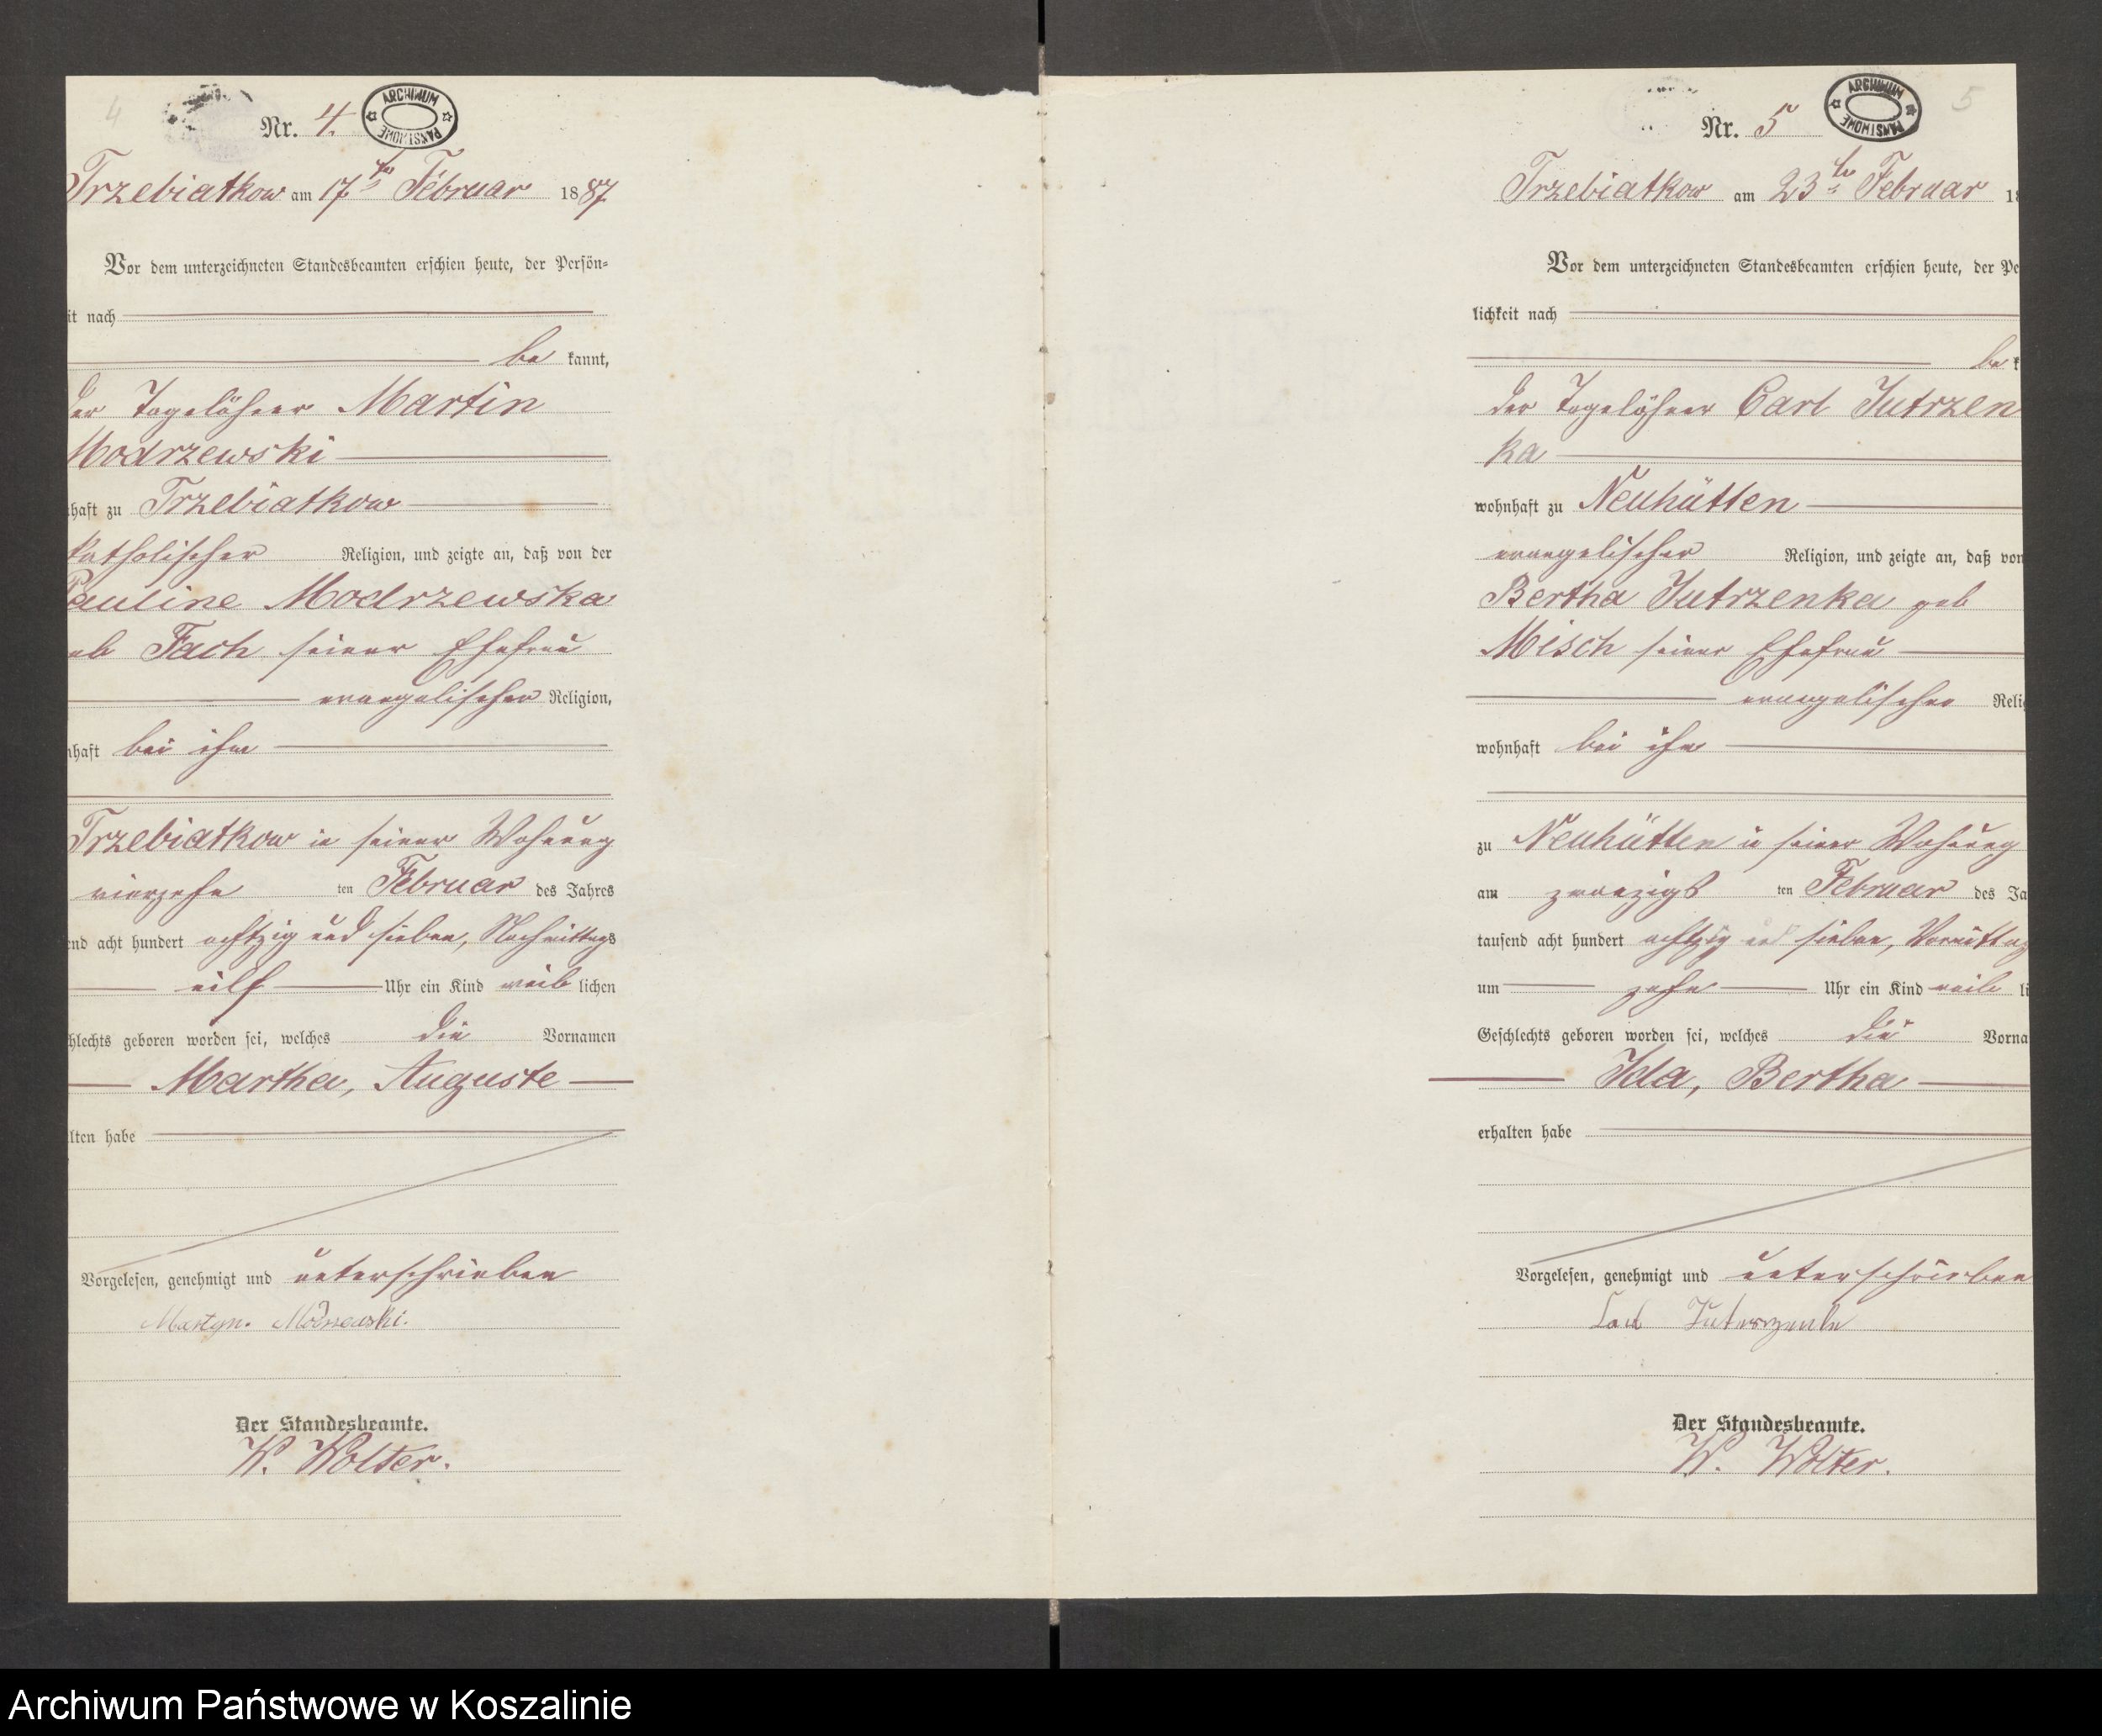 4
Nr. 4.
ARCHIWUM PAŃSTWOWE
Trzebiatkow am 17ten Februar 1887
Vor dem unterzeichneten Standesbeamten erschien heute, der Persön-
it nach
be kannt,
der Tagelöhner Martin
Modrzewski
haft zu Trzebiatkow
katholischer Religion, und zeigte an, daß von der
Pauline Modrzewska
eb Fach seiner Ehefrau
evangelischer Religion,
haft bei ihm
Trzebiatkow in seiner Wohnung
vierzehn ten Februar des Jahres
end acht hundert achtzig und sieben, Nachmittags
eilf Uhr ein Kind weib lichen
hlechts geboren worden sei, welches die Vornamen
Martha, Auguste
lten habe
Vorgelesen, genehmigt und unterschrieben
Martyn. Modrzewski.
Der Standesbeamte.
W. Wolter.
5
Nr. 5
ARCHIWUM PAŃSTWOWE
Trzebiatkow am 23ten Februar 18
Vor dem unterzeichneten Standesbeamten erschien heute, der Pe
lichkeit nach
be k
der Tagelöhner Carl Jutrzen
ka
wohnhaft zu Neuhütten
evangelischer Religion, und zeigte an, daß von
Bertha Jutrzenka geb
Misch seiner Ehefrau
evangelischer Reli
wohnhaft bei ihm
zu Neuhütten in seiner Wohnung
am zwanzigs ten Februar des Ja
tausend acht hundert achtzig und sieben, Vormittag
um zehn Uhr ein Kind weib li
Geschlechts geboren worden sei, welches die Vorna
Ida, Bertha
erhalten habe
Vorgelesen, genehmigt und unterschrieben
Carl
Der Standesbeamte.
W. Wolter.
Archiwum Państwowe w Koszalinie